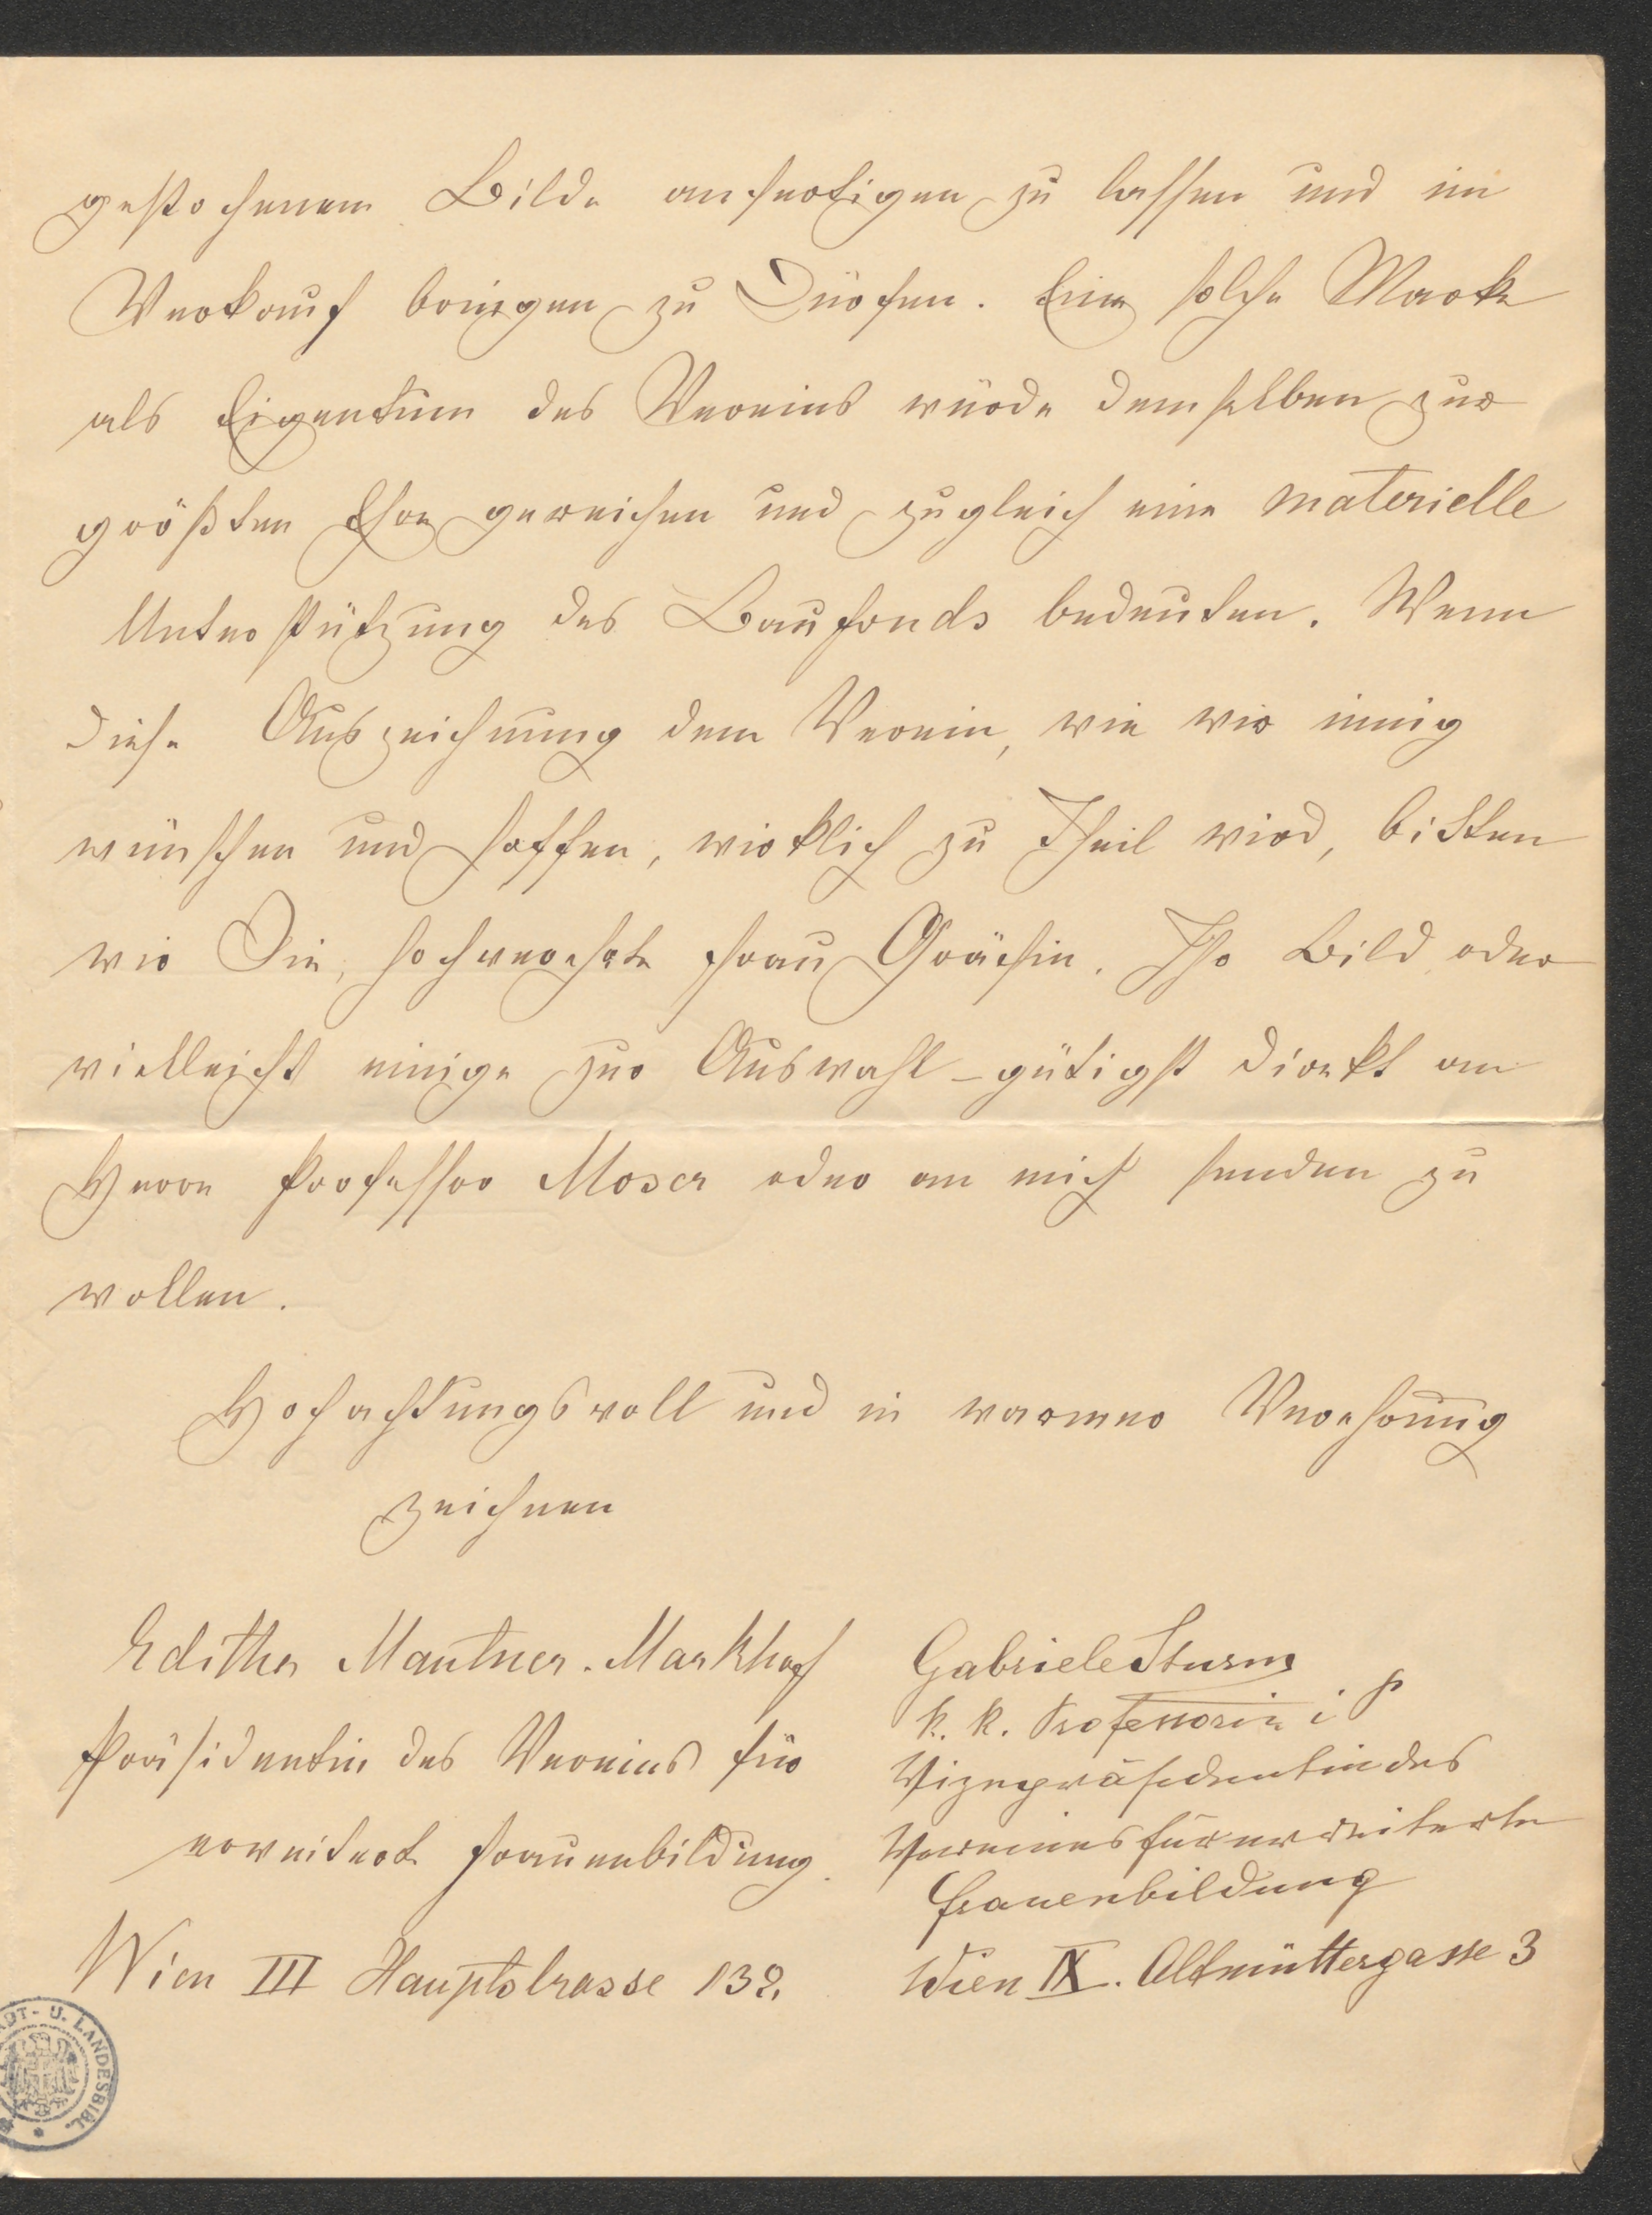 gestochenem Bilde anfertigen zu lassen und in
Verkauf bringen zu dürfen. Eine solche Marke
als Eigentum des Vereins würde demselben zur
größten Ehre gereichen und zugleich eine materielle
Unterstützung des Baufonds bedeuten. Wenn
diese Auszeichnung dem Verein, wie wir innig
wünschen und hoffen, wirklich zu Theil wird, bitten
wir Sie, hochverehrte Frau Gräfin, Ihr Bild oder
vielleicht einige zur Auswahl – gütigst direkt an
Herrn Professor Moser oder an mich senden zu
wollen.
Hochachtungsvoll und in warmer Verehrung
zeichnen
Editha Mautner-Markhof
Präsidentin des Vereins für
erweitert Frauenbildung.
Wien III Hauptstrasse 138.
Gabriele Sturm
k. k. Professorin i P
Vizepräsidentin des
Vereines für erweiterte
Frauenbildung
Wien IX. Altmüttergasse 3
ADT- U. LANDESBIBL.